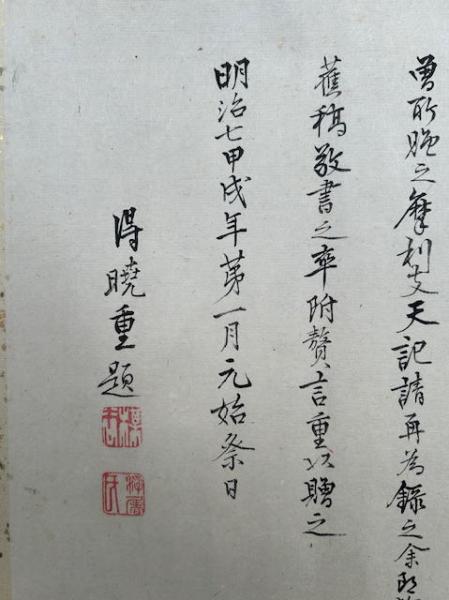 曽所贈之摩利支天記請再為録之余即
舊稿敬書之卒附贅言重以贈之
明治七甲戌年第一月元始祭日
得曉重題